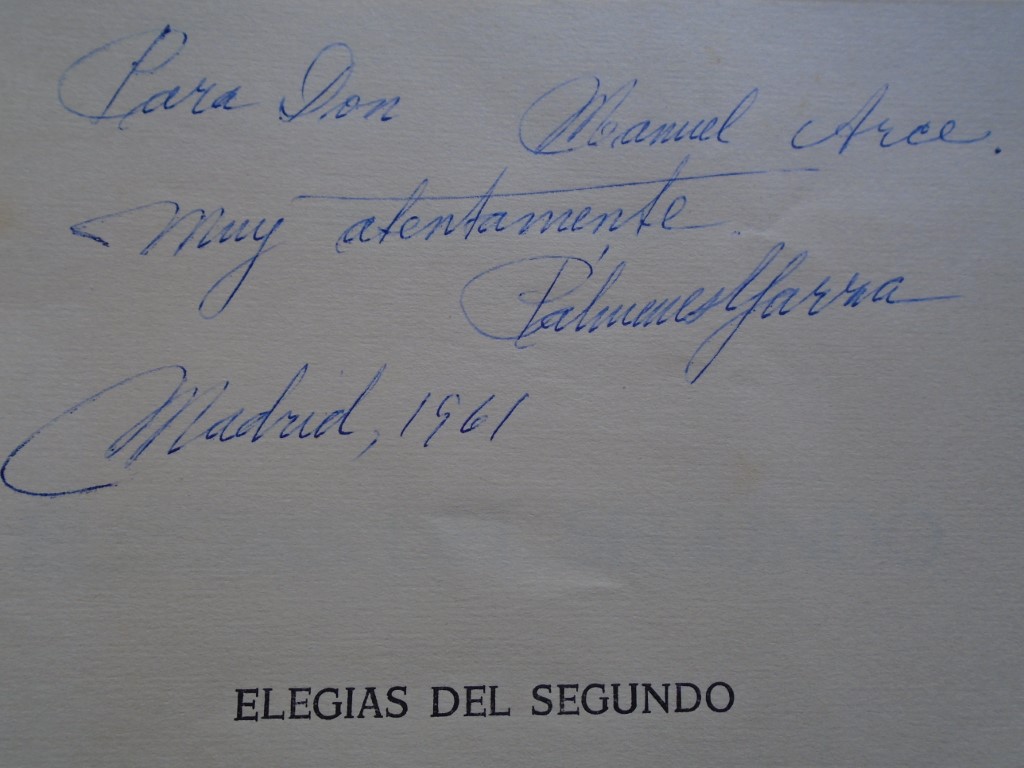 Para Don Manuel Arce.
Muy atentamente
Pálmenes Yarza
Madrid, 1961
ELEGIAS DEL SEGUNDO